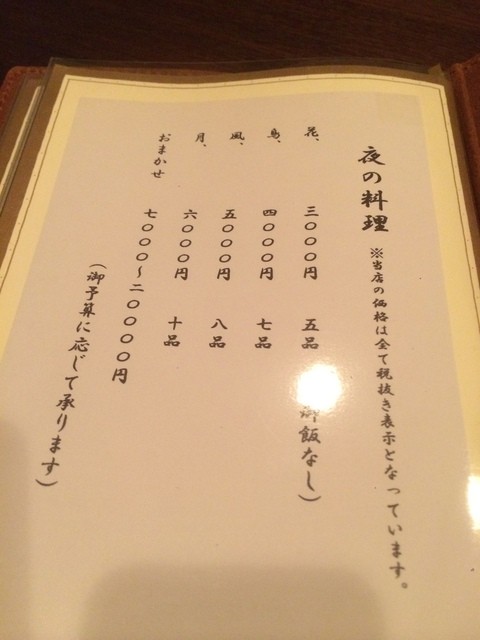 夜の料理 ※当店の価格は全て税抜き表示となっています。
花、 三〇〇〇円 五品 御飯なし)
鳥、 四〇〇〇円 七品
風、 五〇〇〇円 八品
月、 六〇〇〇円 十品
おまかせ 七〇〇〇～二〇〇〇〇円
(御予算に応じて承ります)